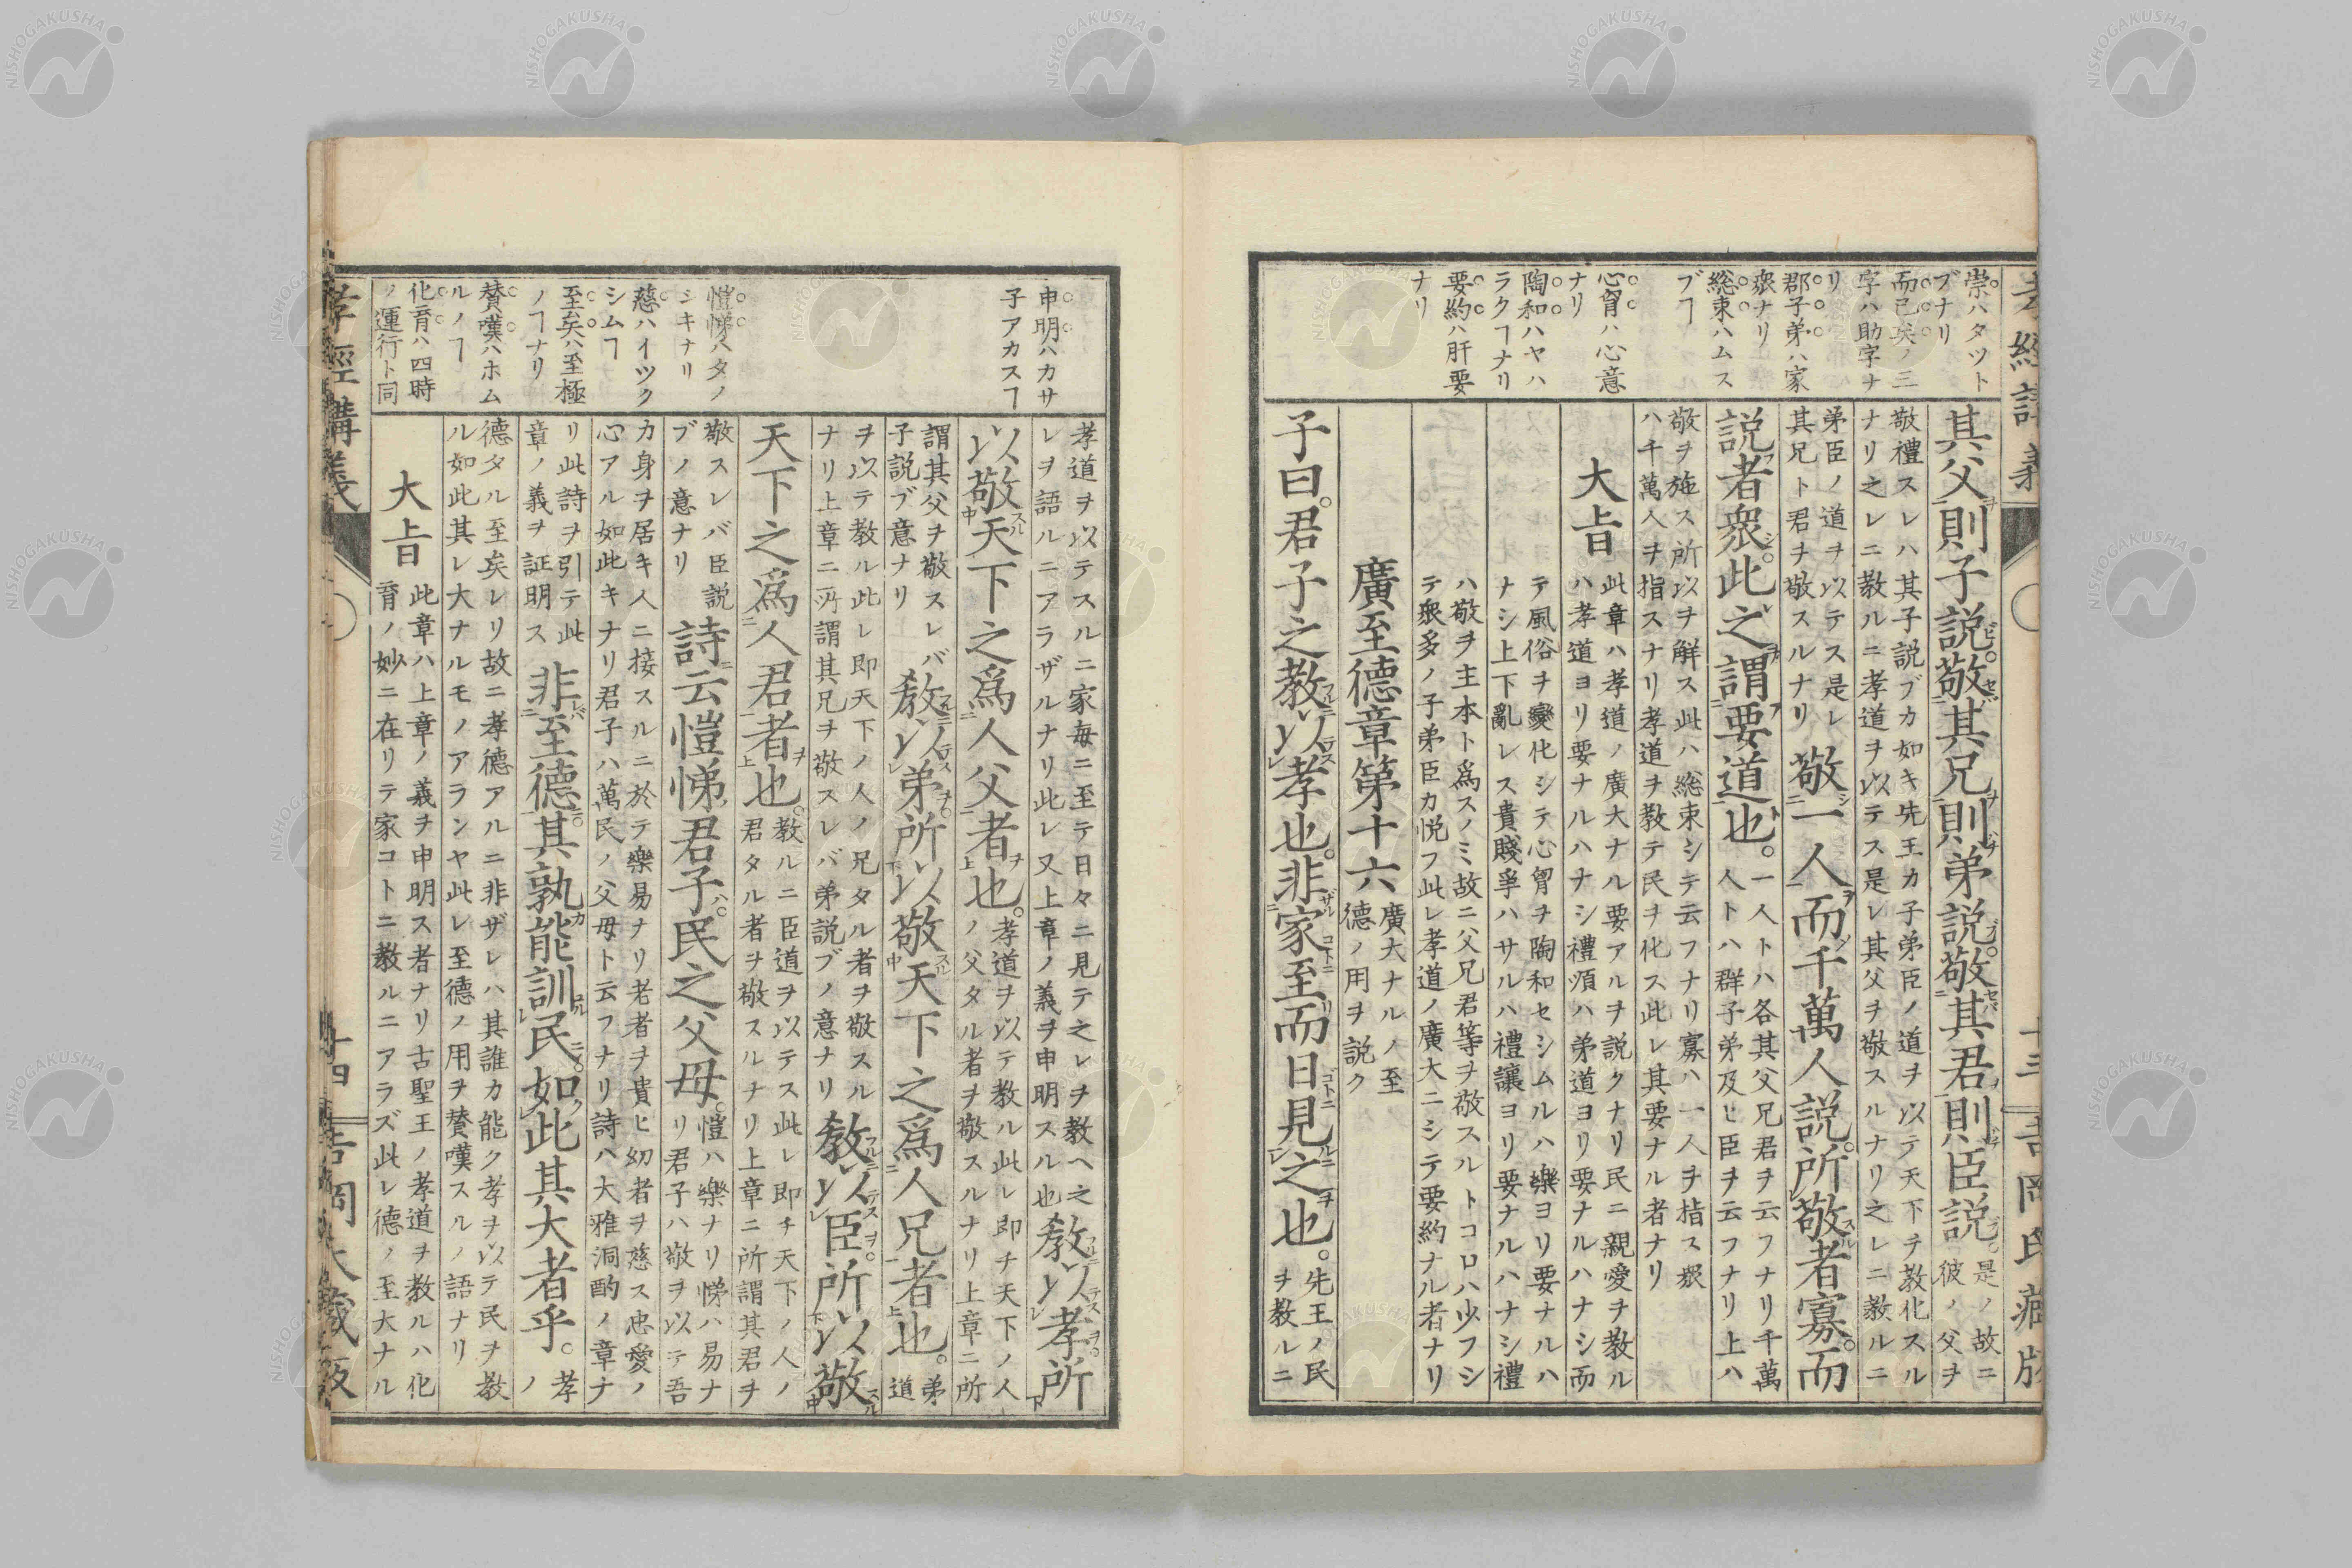 孝經講義
十三
吉岡氏藏版
崇ハタツト
ブナリ
而已矣ノ三
字ハ助字ナ
リ
郡子弟ハ家
衆ナリ
総束ハムス
ブヿ
心胷ハ心意
ナリ
陶和ハヤハ
ラクヿナリ
要約ハ肝要
ナリ
其父則子説。敬其兄則弟説。敬其君則臣説。
是ノ故ニ
彼ノ父ヲ
敬禮スレハ其子説ブカ如キ先王カ子弟臣ノ道ヲ以テ天下ヲ教化スル
ナリ之レニ教ルニ孝道ヲ以テス是レ其父ヲ敬スルナリ之レニ教ルニ
弟臣ノ道ヲ以テス是レ
其兄ト君ヲ敬スルナリ
敬一人而千萬人説。所敬者寡。而
説者衆。此之謂要道也。
一人トハ各其父兄君ヲ云フナリ千萬
人トハ群子弟及ヒ臣ヲ云フナリ上ハ
敬ヲ施ス所以ヲ解ス此ハ総束シテ云フナリ寡ハ一人ヲ指ス衆
ハ千萬人ヲ指スナリ孝道ヲ教テ民ヲ化ス此レ其要ナル者ナリ
大旨
此章ハ孝道ノ廣大ナル要アルヲ説クナリ民ニ親愛ヲ教ル
ハ孝道ヨリ要ナルハナシ禮順ハ弟道ヨリ要ナルハナシ而
テ風俗ヲ變化シテ心胷ヲ陶和セシムルハ樂ヨリ要ナルハ
ナシ上下亂レス貴賤爭ハサルハ禮讓ヨリ要ナルハナシ禮
ハ敬ヲ主本ト爲スノミ故ニ父兄君等ヲ敬スルトコロハ少フシ
テ衆多ノ子弟臣カ悦フ此レ孝道ノ廣大ニシテ要約ナル者ナリ
廣至德章第十六
廣大ナルノ至
德ノ用ヲ説ク
子曰。君子之教以孝也。非家至而日見之也。
先王ノ民
ヲ教ルニ
申明ハカサ
子アカスヿ
愷悌ハタノ
シキナリ
慈ハイツク
シムヿ
至矣ハ至極
ノヿナリ
賛嘆ハホム
ルノヿ
化育ハ四時
ノ運行ト同
孝道ヲ以テスルニ家毎ニ至テ日々ニ見テ之レヲ教ヘ之
レヲ語ルニアラザルナリ此レ又上章ノ義ヲ申明スル也
教以孝所
以敬天下之爲人父者也。
孝道ヲ以テ教ル此レ即チ天下ノ人
ノ父タル者ヲ敬スルナリ上章ニ所
謂其父ヲ敬スレバ
子説ブ意ナリ
教以弟所以敬天下之爲人兄者也。
弟
道
ヲ以テ教ル此レ即天下ノ人ノ兄タル者ヲ敬スル
ナリ上章ニ所謂其兄ヲ敬スレバ弟説ブノ意ナリ
教以臣。所以敬
天下之爲人君者也。
教ルニ臣道ヲ以テス此レ即チ天下ノ人ノ
君タル者ヲ敬スルナリ上章ニ所謂其君ヲ
敬スレバ臣説
ブノ意ナリ
詩云愷悌君子。民之父母。
愷ハ樂ナリ悌ハ易ナ
リ君子ハ敬ヲ以テ吾
カ身ヲ居キ人ニ接スルニ於テ樂易ナリ老者ヲ貴ヒ幼者ヲ慈ス忠愛ノ
心アル如此キナリ君子ハ萬民ノ父母ト云フナリ詩ハ大雅洞酌ノ章ナ
リ此詩ヲ引テ此
章ノ義ヲ証明ス
非至德。其孰能訓民。如此其大者乎。
孝
ノ
德タル至矣レリ故ニ孝德アルニ非ザレハ其誰カ能ク孝ヲ以テ民ヲ教
ル如此其レ大ナルモノアランヤ此レ至德ノ用ヲ賛嘆スルノ語ナリ
大旨
此章ハ上章ノ義ヲ申明ス者ナリ古聖王ノ孝道ヲ教ルハ化
育ノ妙ニ在リテ家コトニ教ルニアラズ此レ德ノ至大ナル
孝經講義
十四
吉岡氏藏版